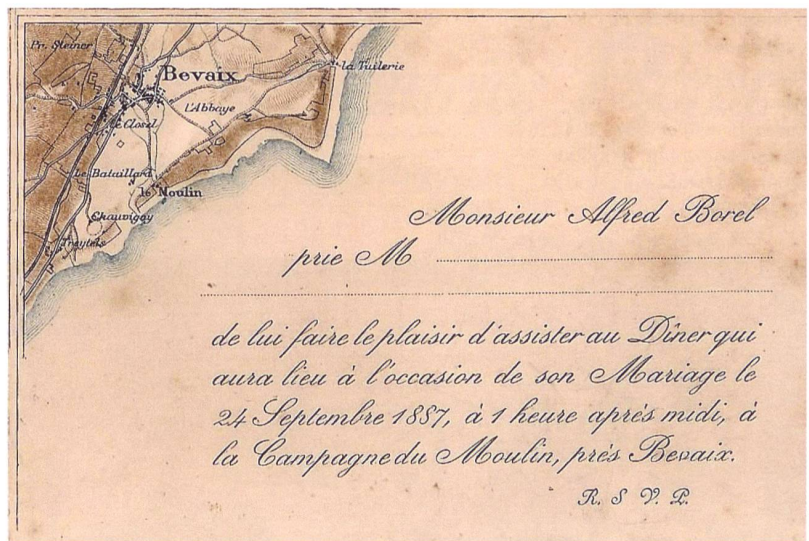 Pr. Steiner
Bevaix
la Tuilerie
L'Abbaye
le Closel
Le Bataillard
le Moulin
Chauvigny
Treytels
Monsieur Alfred Borel
prie M
de lui faire le plaisir d'assister au Dîner qui
aura lieu à l'occasion de son Mariage le
24 Septembre 1887, à 1 heure après midi, à
la Campagne du Moulin, près Bevaix.
R. S. V. P.